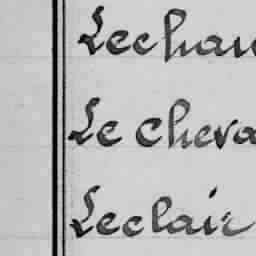 Lechau
Le Cheva
Leclair